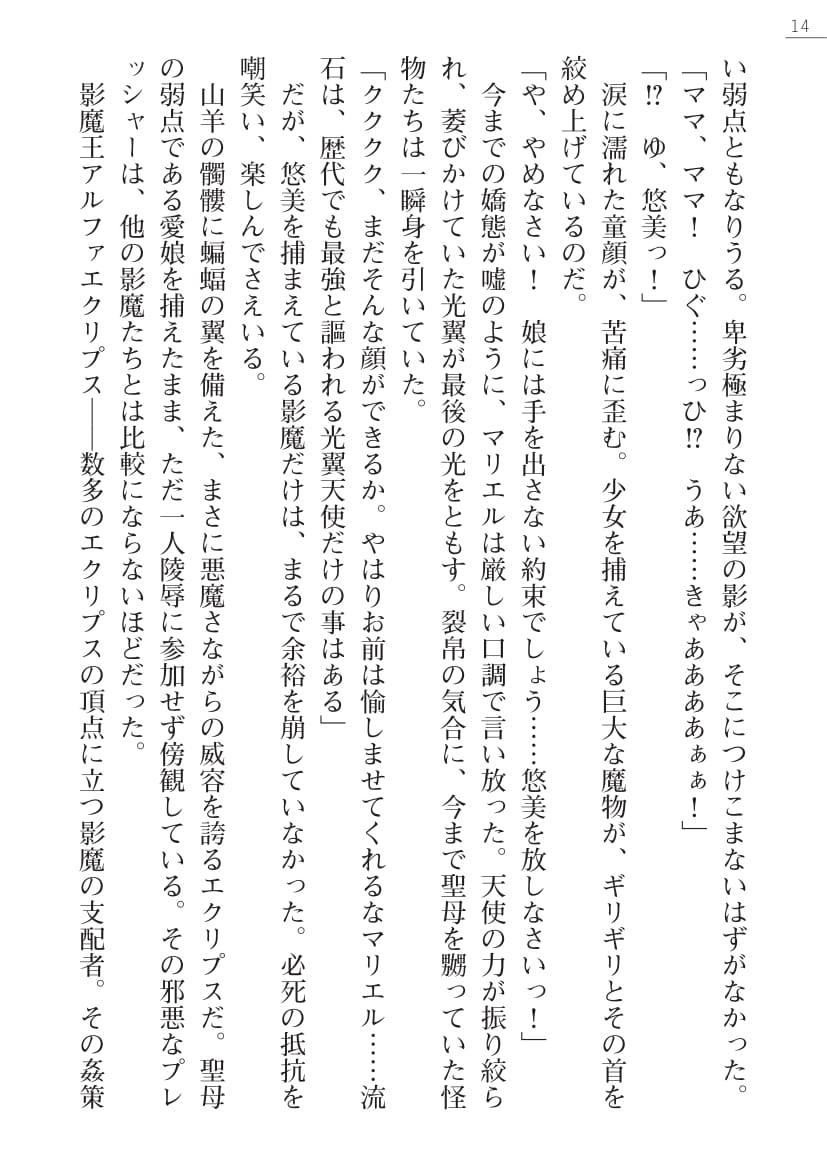 14
い弱点ともなりうる。卑劣極まりない欲望の影が、そこにつけこまないはずがなかった。
「ママ、ママ！　ひぐ……っひ!?　うあ……きゃああああぁぁ！」
「!?　ゆ、悠美っ！」
　涙に濡れた童顔が、苦痛に歪む。少女を捕えている巨大な魔物が、ギリギリとその首を
絞め上げているのだ。
「や、やめなさい！　娘には手を出さない約束でしょう……悠美を放しなさいっ！」
　今までの嬌態が嘘のように、マリエルは厳しい口調で言い放った。天使の力が振り絞ら
れ、萎びかけていた光翼が最後の光をともす。裂帛の気合に、今まで聖母を嬲っていた怪
物たちは一瞬身を引いていた。
「クククク、まだそんな顔ができるか。やはりお前は愉しませてくれるなマリエル……流
石は、歴代でも最強と謳われる光翼天使だけの事はある」
　だが、悠美を捕まえている影魔だけは、まるで余裕を崩していなかった。必死の抵抗を
嘲笑い、楽しんでさえいる。
　山羊の髑髏に蝙蝠の翼を備えた、まさに悪魔さながらの威容を誇るエクリプスだ。聖母
の弱点である愛娘を捕えたまま、ただ一人陵辱に参加せず傍観している。その邪悪なプレ
ッシャーは、他の影魔たちとは比較にならないほどだった。
　影魔王アルファエクリプス――数多のエクリプスの頂点に立つ影魔の支配者。その姦策